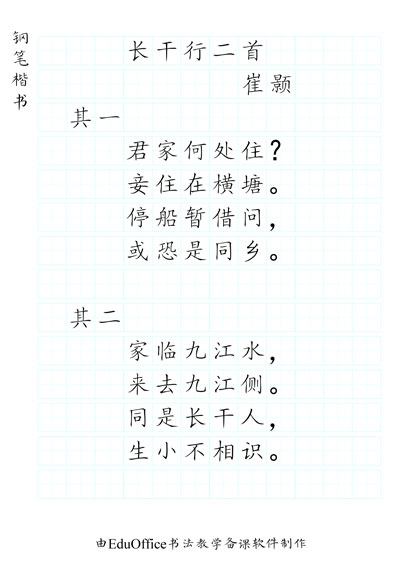 钢笔楷书
长干行二首
崔颢
其一
君家何处住?
妾住在横塘。
停船暂借问,
或恐是同乡。
其二
家临九江水,
来去九江侧。
同是长干人,
生小不相识。
由EduOffice书法教学备课软件制作